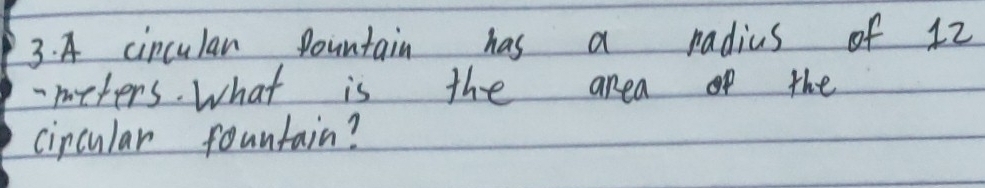 3. A circular fountain has a radius of 12
-meters. What is the area of the
circular fountain?